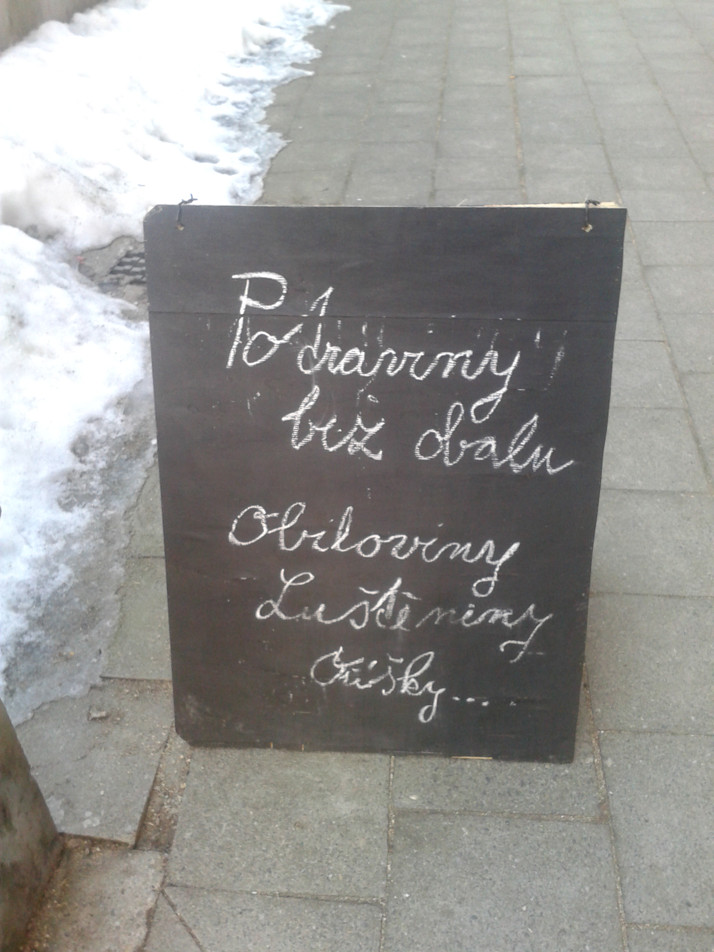 Potraviny
bez obalu
Obiloviny
Luštěniny
Oříšky...